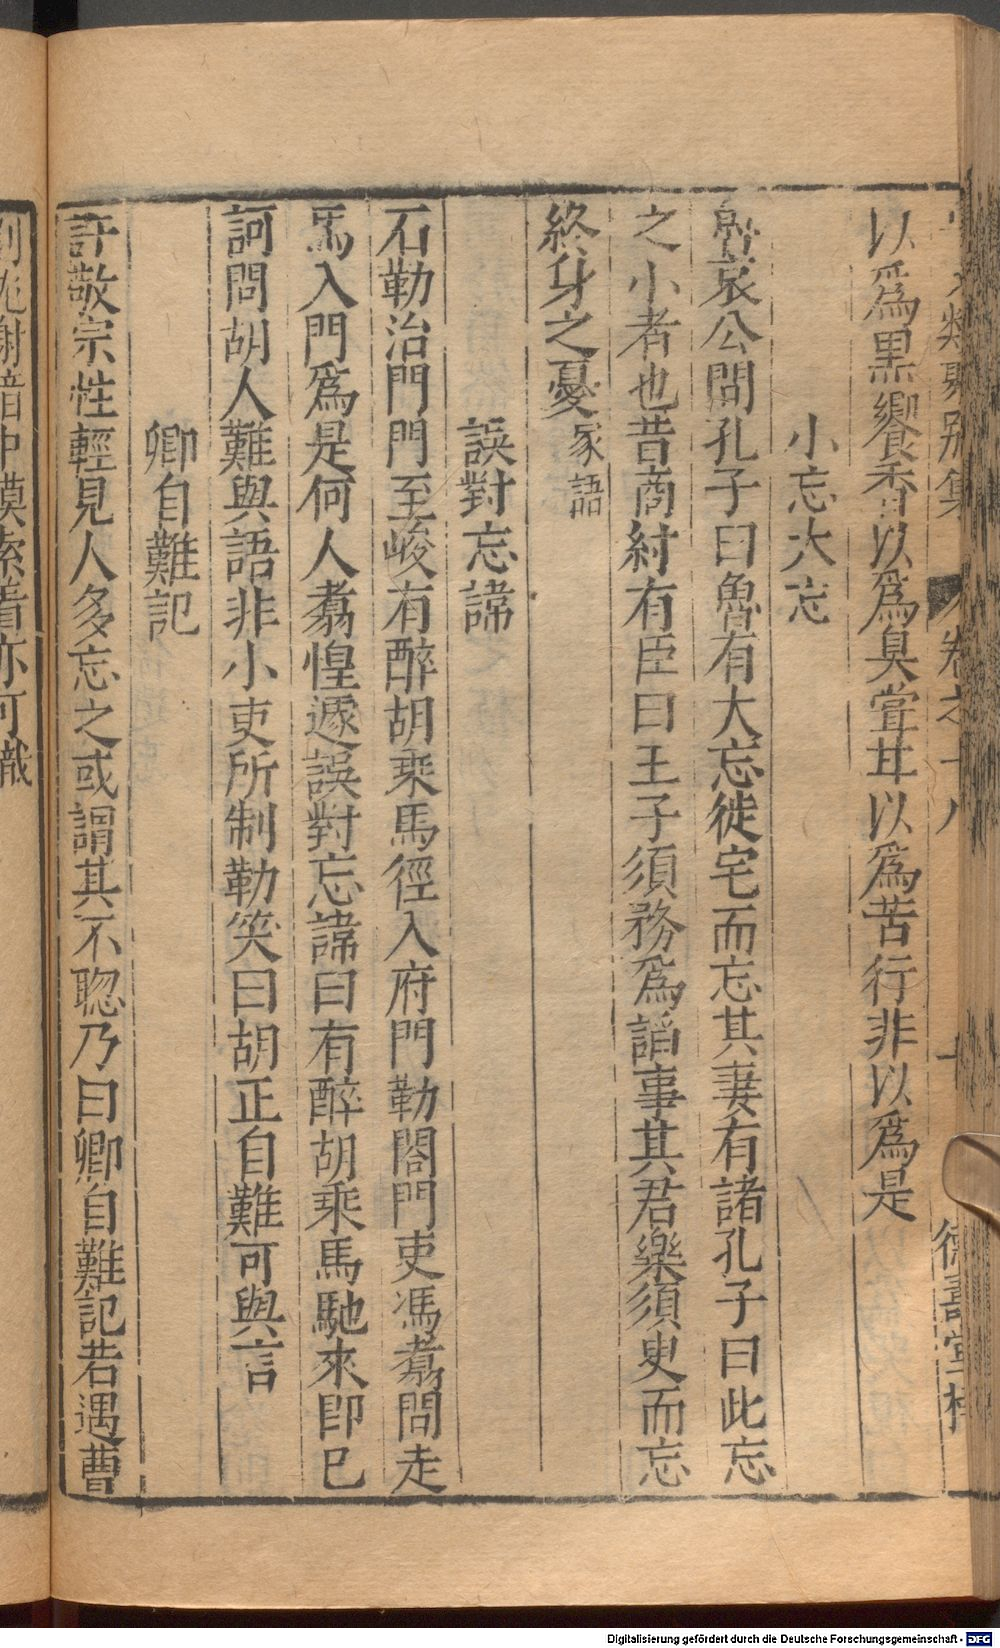 類 別集 卷之十八 十 德壽堂梓
以爲黑饗香以爲臭甞甘以爲苦行非以爲是
小忘大忘
魯哀公問孔子曰魯有大忘徙宅而忘其妻有諸孔子曰此忘
之小者也昔商紂有臣曰王子須務爲謟事其君樂須臾而忘
終身之憂家語
誤對忘諱
石勒治門門至峻有醉胡乘馬徑入府門勒閤門吏馮翥問走
馬入門爲是何人翥惶遽誤對忘諱曰有醉胡乘馬馳來即已
訶問胡人難與語非小吏所制勒笑曰胡正自難可與言
卿自難記
許敬宗性輕見人多忘之或謂其不聦乃曰卿自難記若遇曹
劉沈謝暗中摸索着亦可識
Digitalisierung gefördert durch die Deutsche Forschungsgemeinschaft - DFG